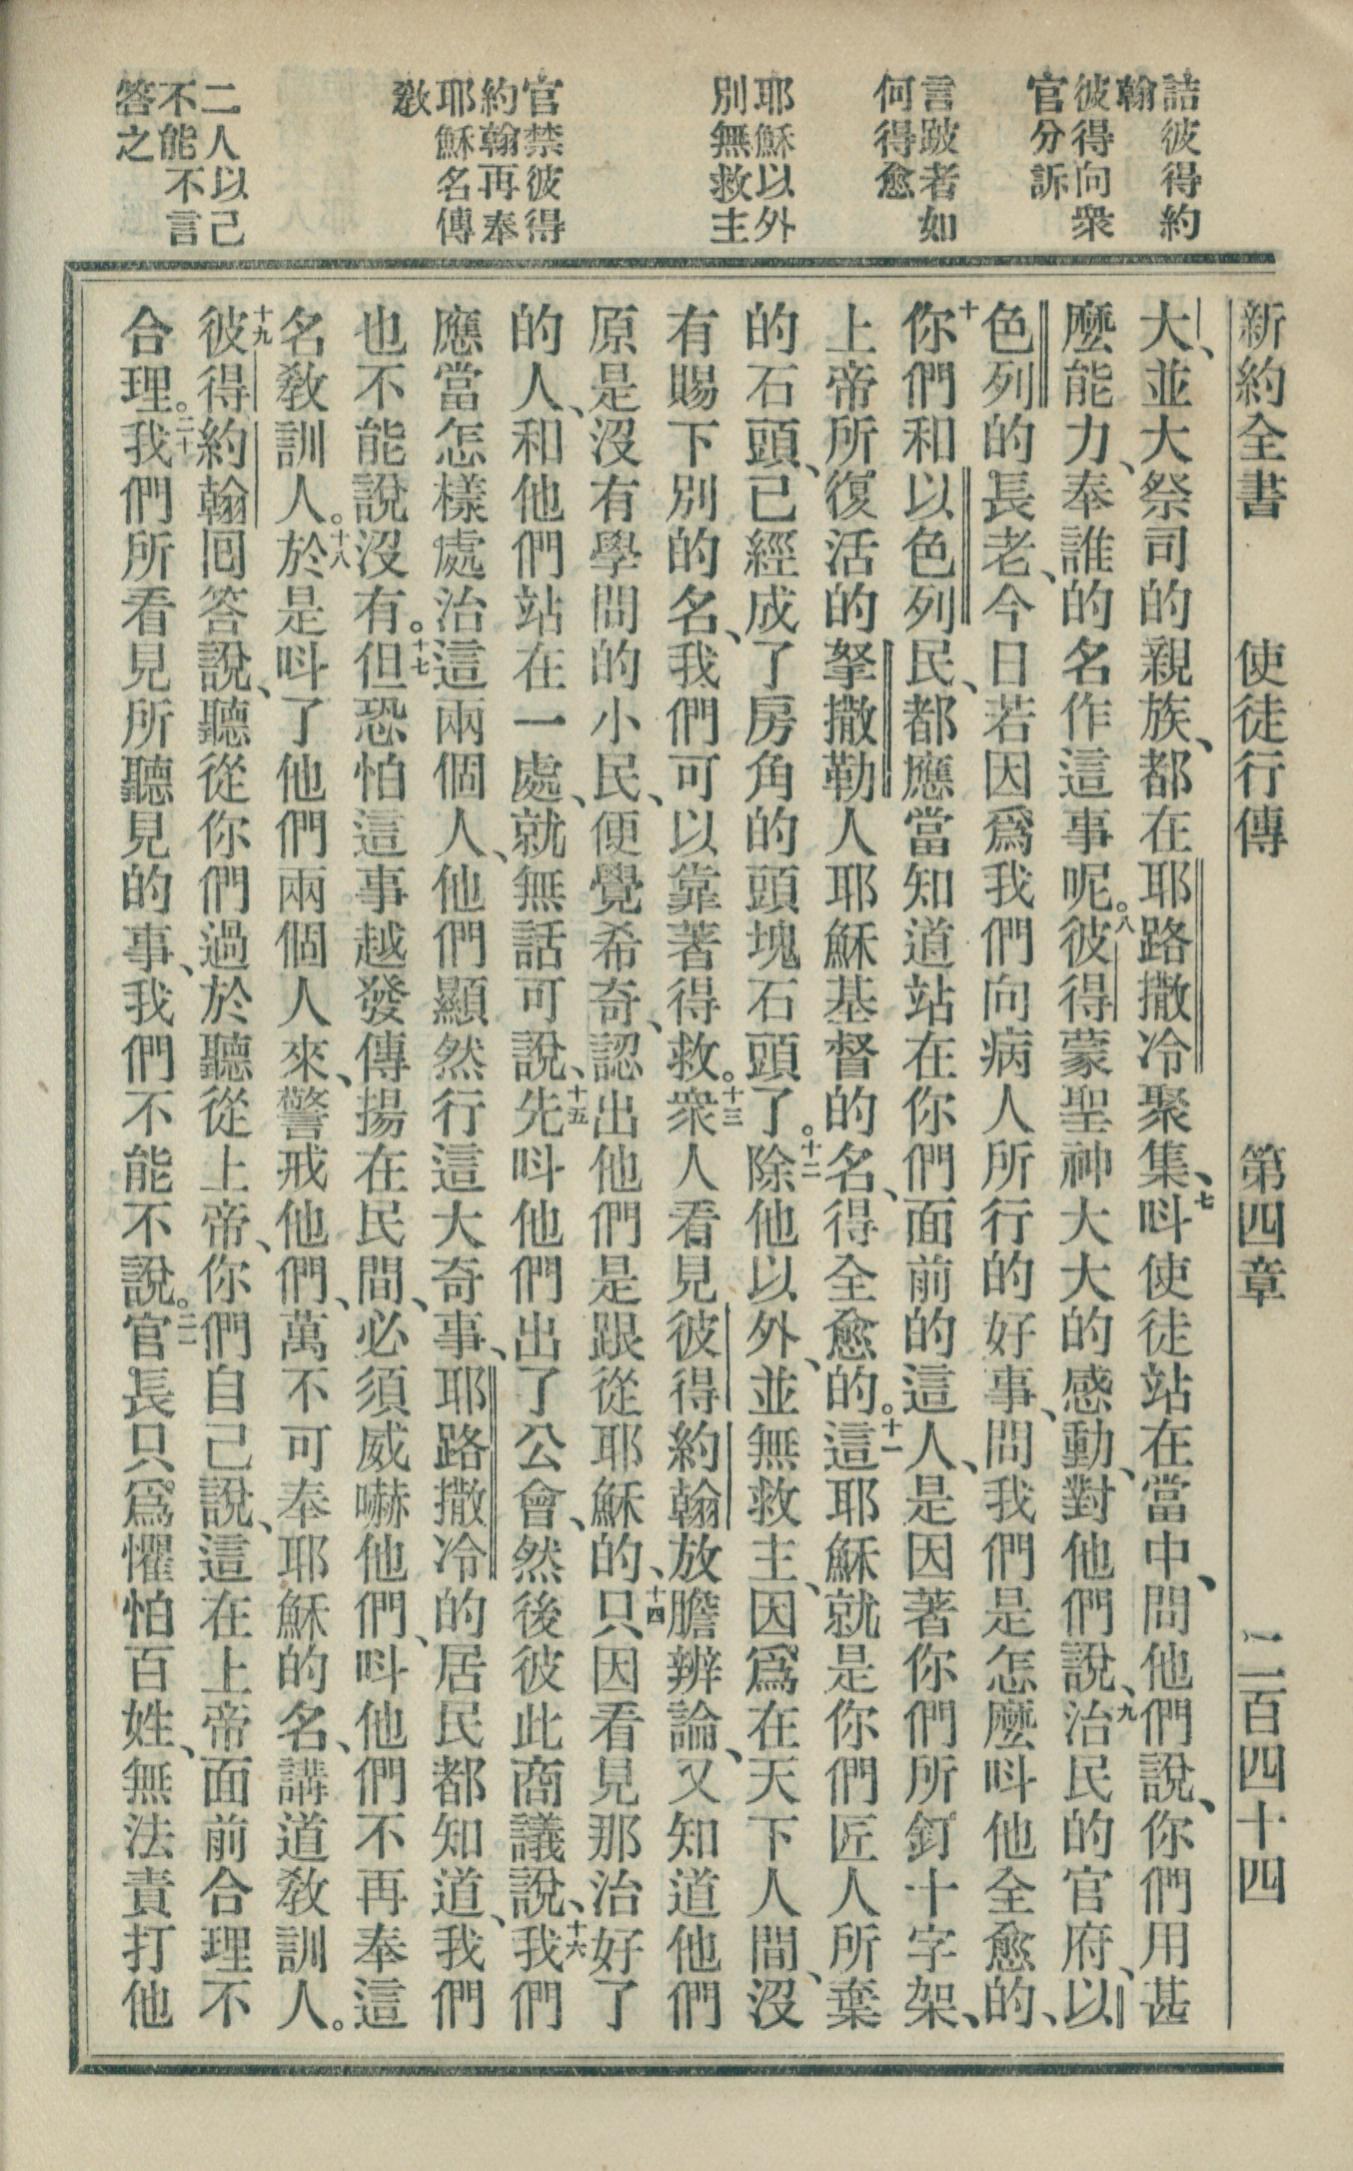 新約全書 使徒行傳 第四章 二百四十四
詰彼得約
翰
彼得向衆
官分訴
言跛者如
何得愈
耶穌以外
別無救主
官禁彼得
約翰再奉
耶穌名傳
敎
二人以己
不能不言
答之
大、並大祭司的親族、都在耶路撒冷聚集、七呌使徒站在當中、問他們說、你們用甚
麼能力、奉誰的名作這事呢。八彼得蒙聖神大大的感動、對他們說、九治民的官府、以
色列的長老、今日若因爲我們向病人所行的好事、問我們是怎麼呌他全愈的、
十你們和以色列民、都應當知道站在你們面前的這人、是因著你們所釘十字架、
上帝所復活的拏撒勒人耶穌基督的名、得全愈的。十一這耶穌就是你們匠人所棄
的石頭、已經成了房角的頭塊石頭了。十二除他以外、並無救主、因爲在天下人間、沒
有賜下別的名、我們可以靠著得救。十三衆人看見彼得約翰放膽辨論、又知道他們
原是沒有學問的小民、便覺希奇、認出他們是跟從耶穌的、十四只因看見那治好了
的人、和他們站在一處、就無話可說、十五先呌他們出了公會、然後彼此商議說、十六我們
應當怎樣處治這兩個人、他們顯然行這大奇事、耶路撒冷的居民都知道、我們
也不能說沒有。十七但恐怕這事越發傳揚在民間、必須威嚇他們、呌他們不再奉這
名敎訓人。十八於是呌了他們兩個人來、警戒他們、萬不可奉耶穌的名、講道敎訓人。
十九彼得約翰囘答說、聽從你們過於聽從上帝、你們自己說、這在上帝面前合理不
合理。二十我們所看見所聽見的事、我們不能不說。二一官長只爲懼怕百姓、無法責打他